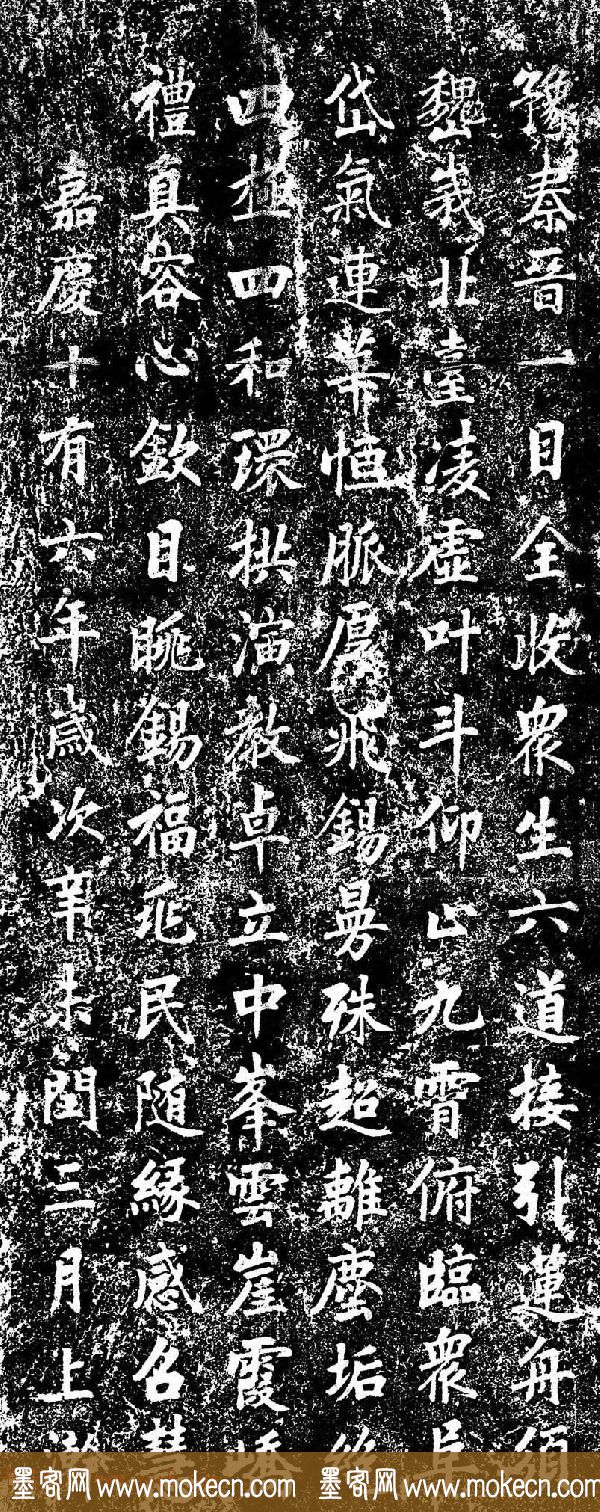 豫秦晉一目全收眾生六道接引蓮舟須
巍峩北臺凌虛叶斗仰止九霄俯臨眾阜
岱氣連華恒脈厚飛錫曼殊超離塵垢
四極四和環拱演教卓立中峯雲崖霞
禮真容心欽目眺錫福兆民隨緣感召慧
嘉慶十有六年歲次辛未閏三月上澣
墨客网 www.mokecn.com 墨客网 www.mokecn.com